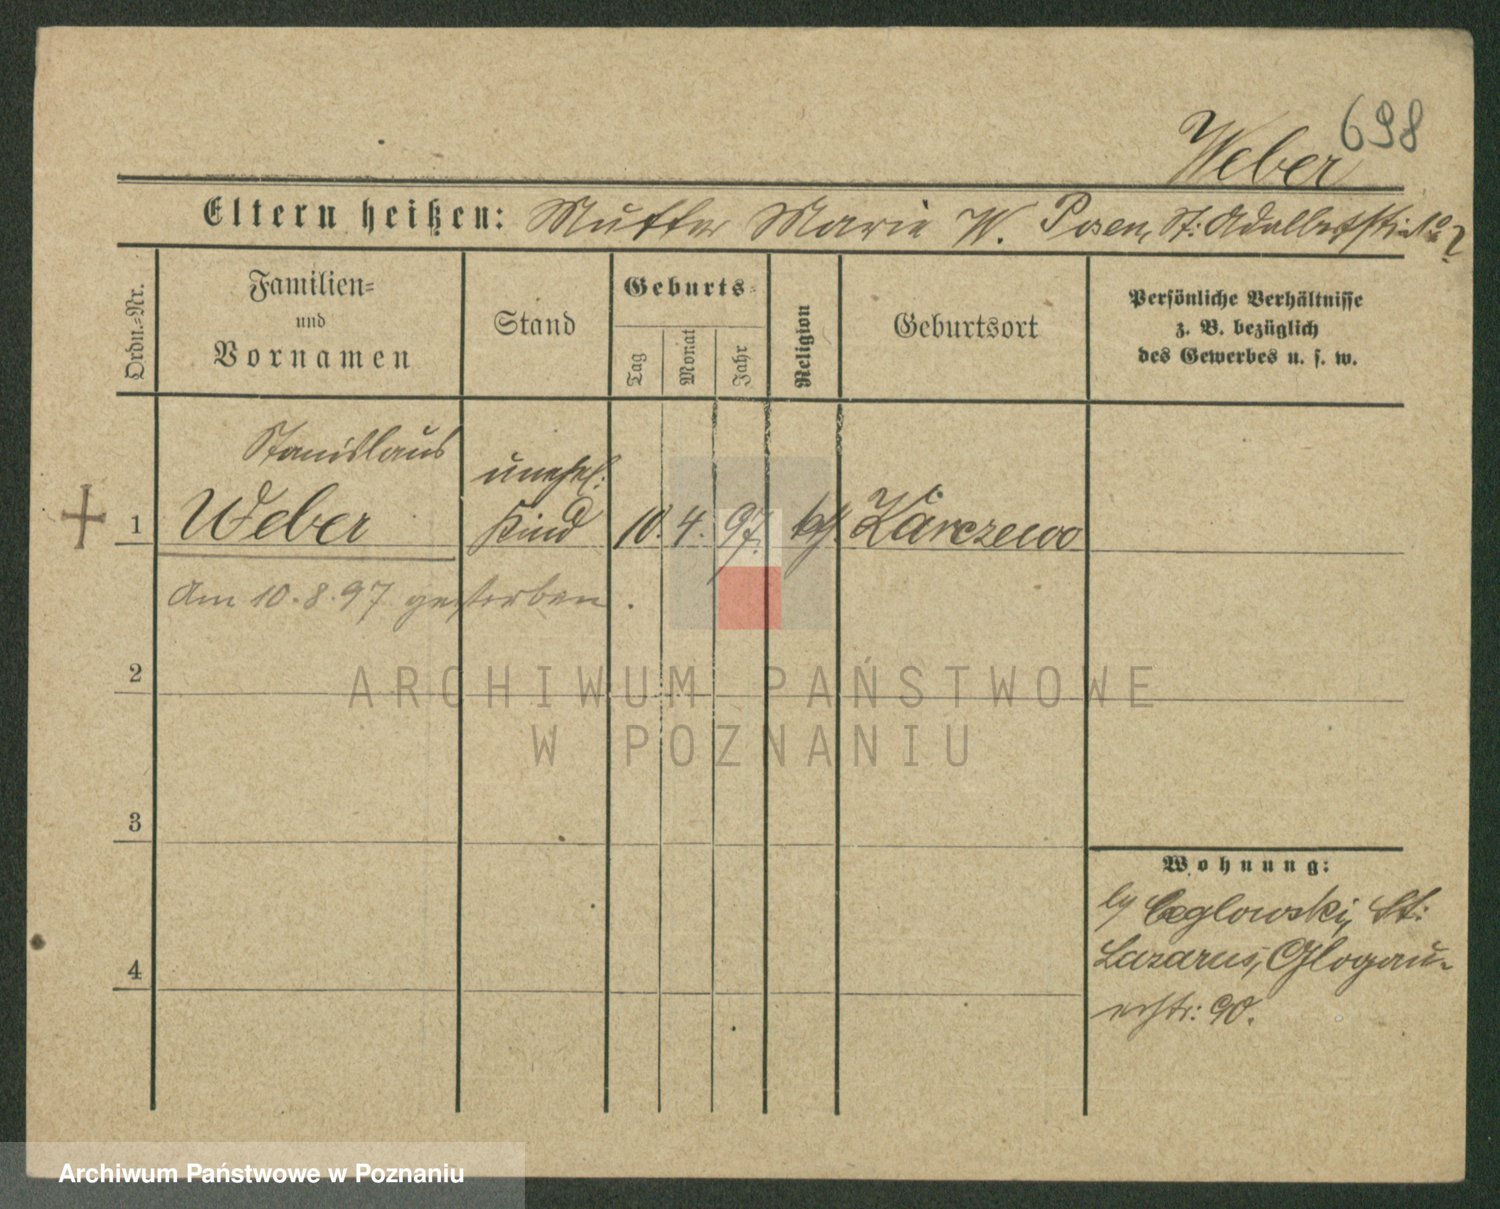 698
Weber
Eltern heißen: Mutter Marie W. Posen, St: Adalbertstr.
Ordn.-Nr.
Familien-
und
Vornamen
Stand
Geburts-
Tag
Monat
Jahr
Religion
Geburtsort
Persönliche Verhältnisse
z. B. bezüglich
des Gewerbes u. s. w.
Stanislaus
unehel:
1 Weber Kind 10. 4. 97. kth. Karczewo
Am 10.8.97 gestorben.
2
3
4
Wohnung:
by Ceglowski, St:
Lazarus, Glogau-
erstr: 90.
ARCHIWUM PAŃSTWOWE
W POZNANIU
Archiwum Państwowe w Poznaniu